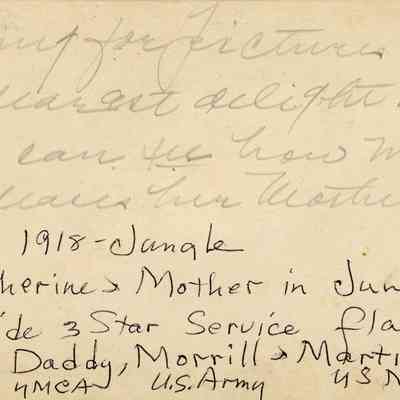 for pictures
dearest delight
can see how M
her Mothe
1918-Jungle
herine & Mother in Jun
ide 3 Star Service fla
Daddy, Morrill & Marti
YMCA U.S. Army US N